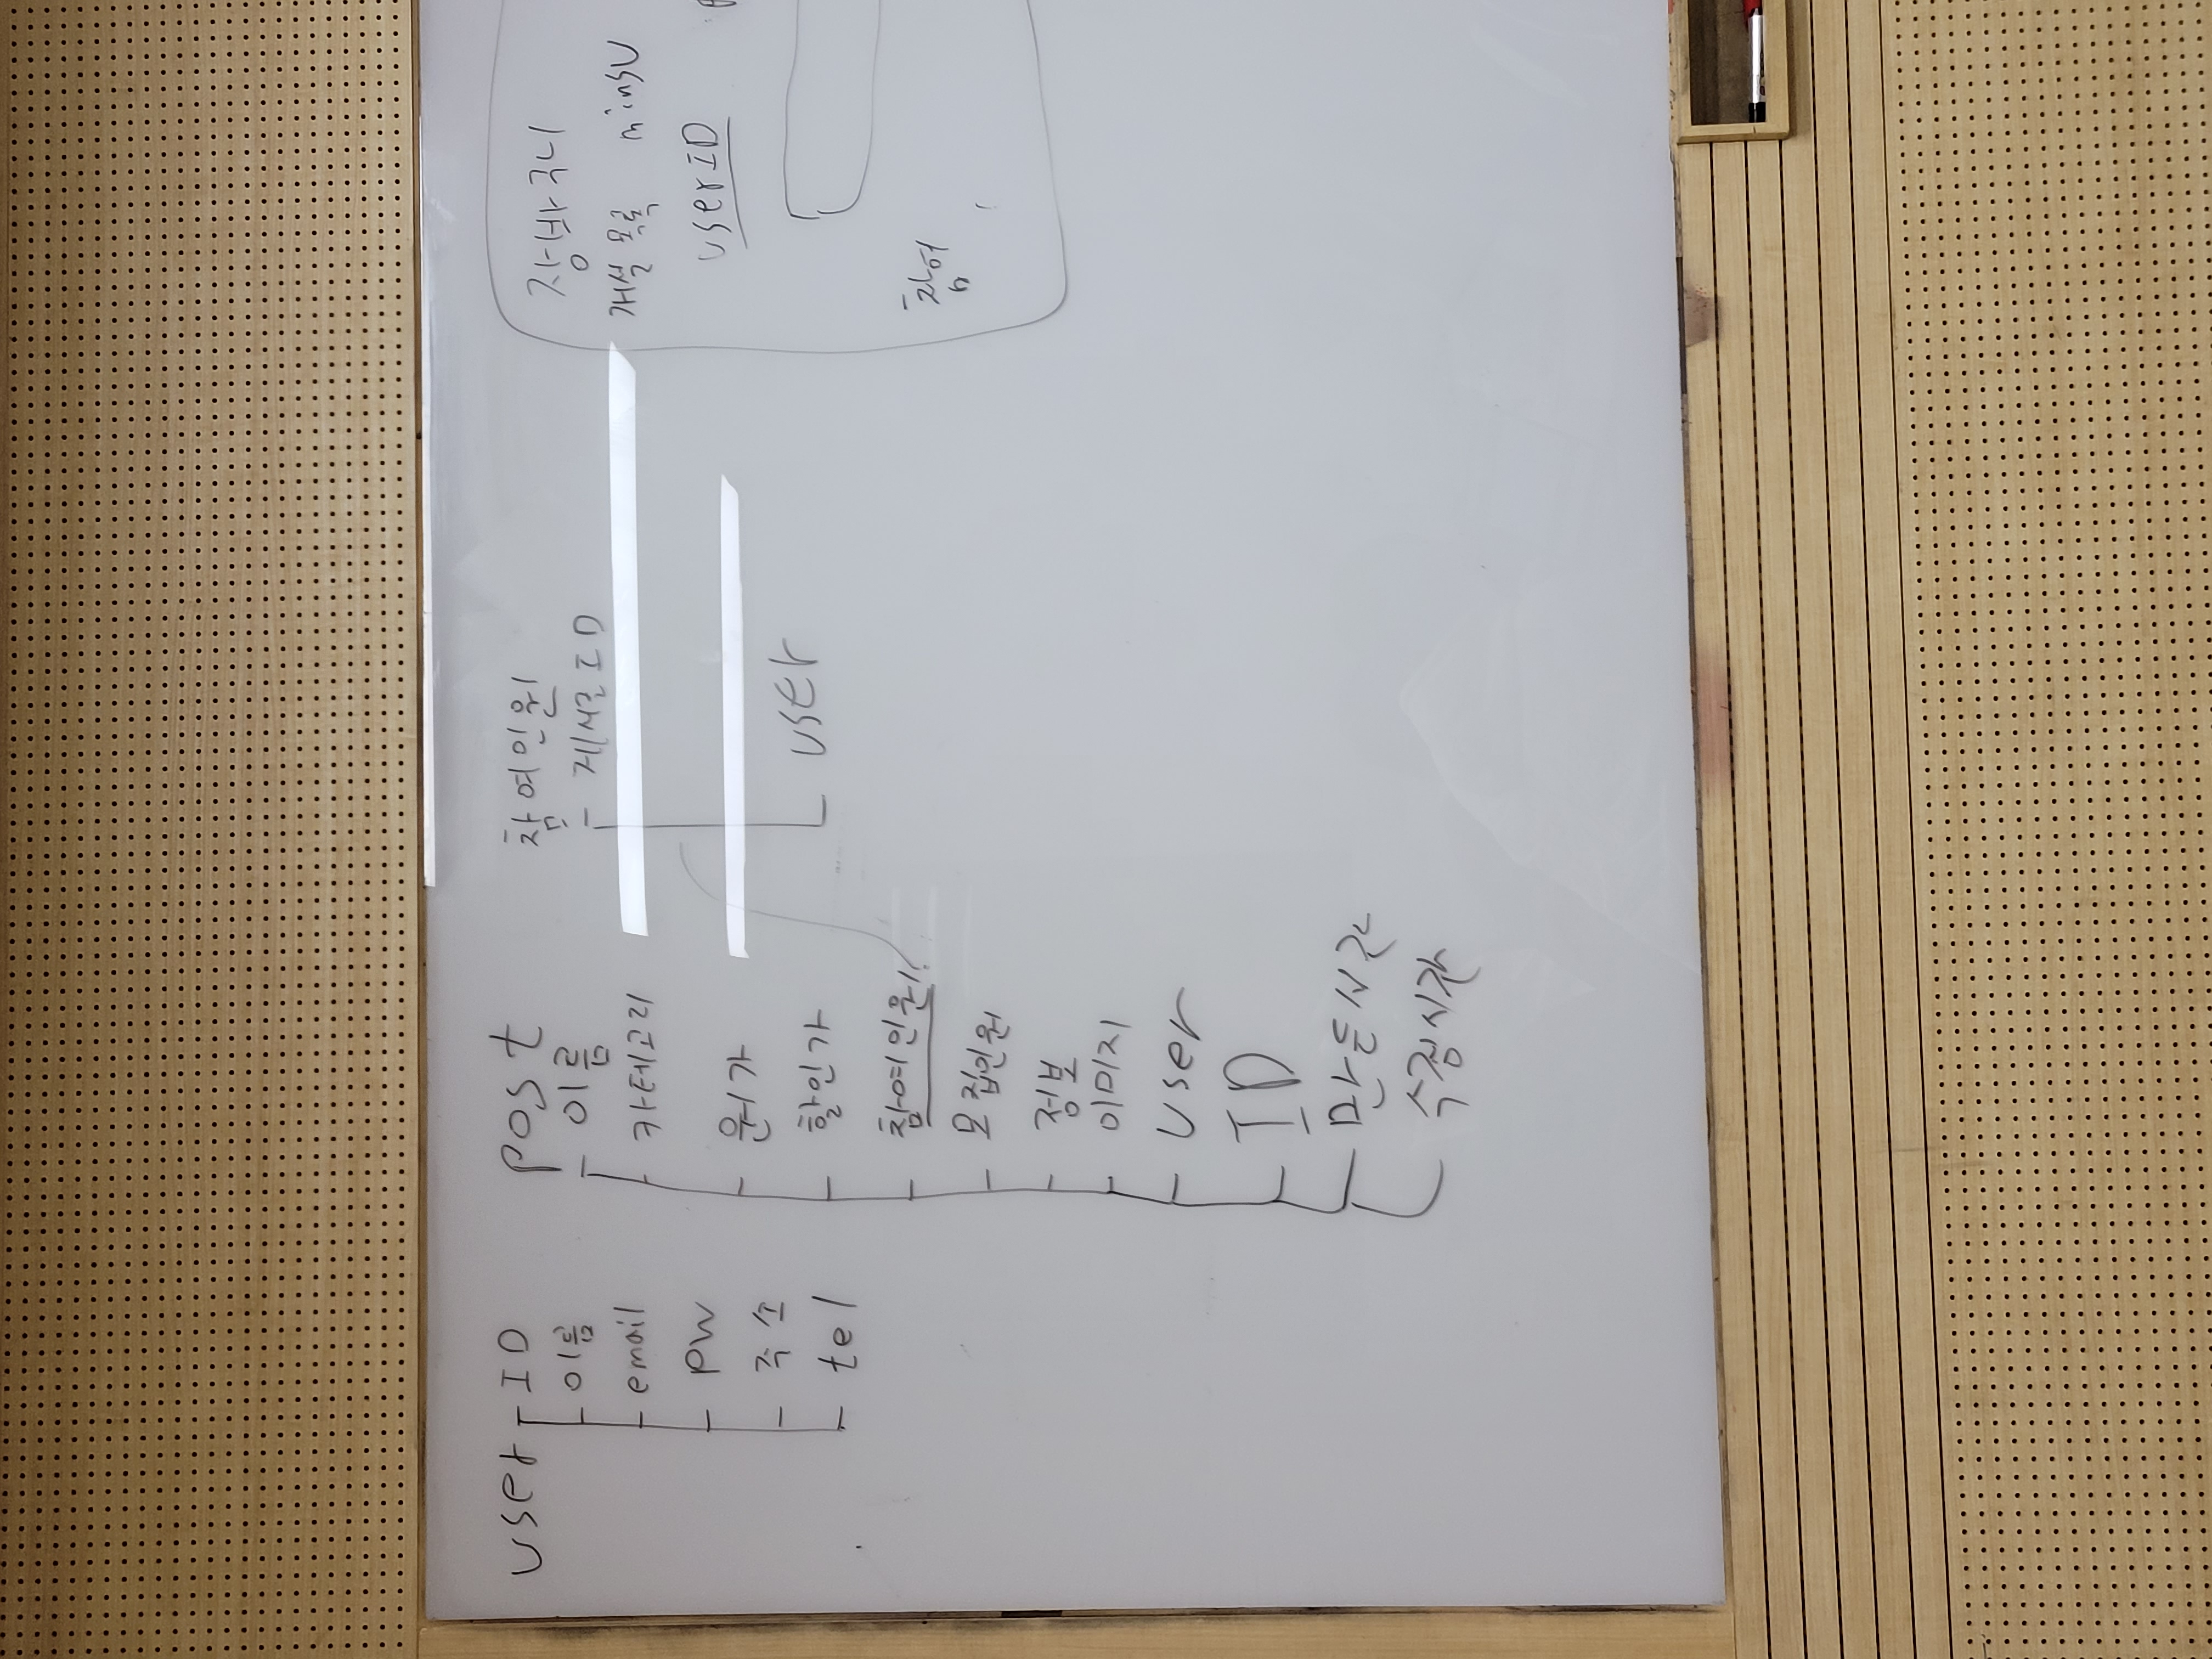 user
ID
이름
email
PW
주소
tel
post
이름
카테고리
원가
할인가
참여인원
모집인원
정보
이미지
user
ID
만든시간
수정시간
참여인원
게시글ID
user
장바구니
개설 목록 minsu
userID
참여